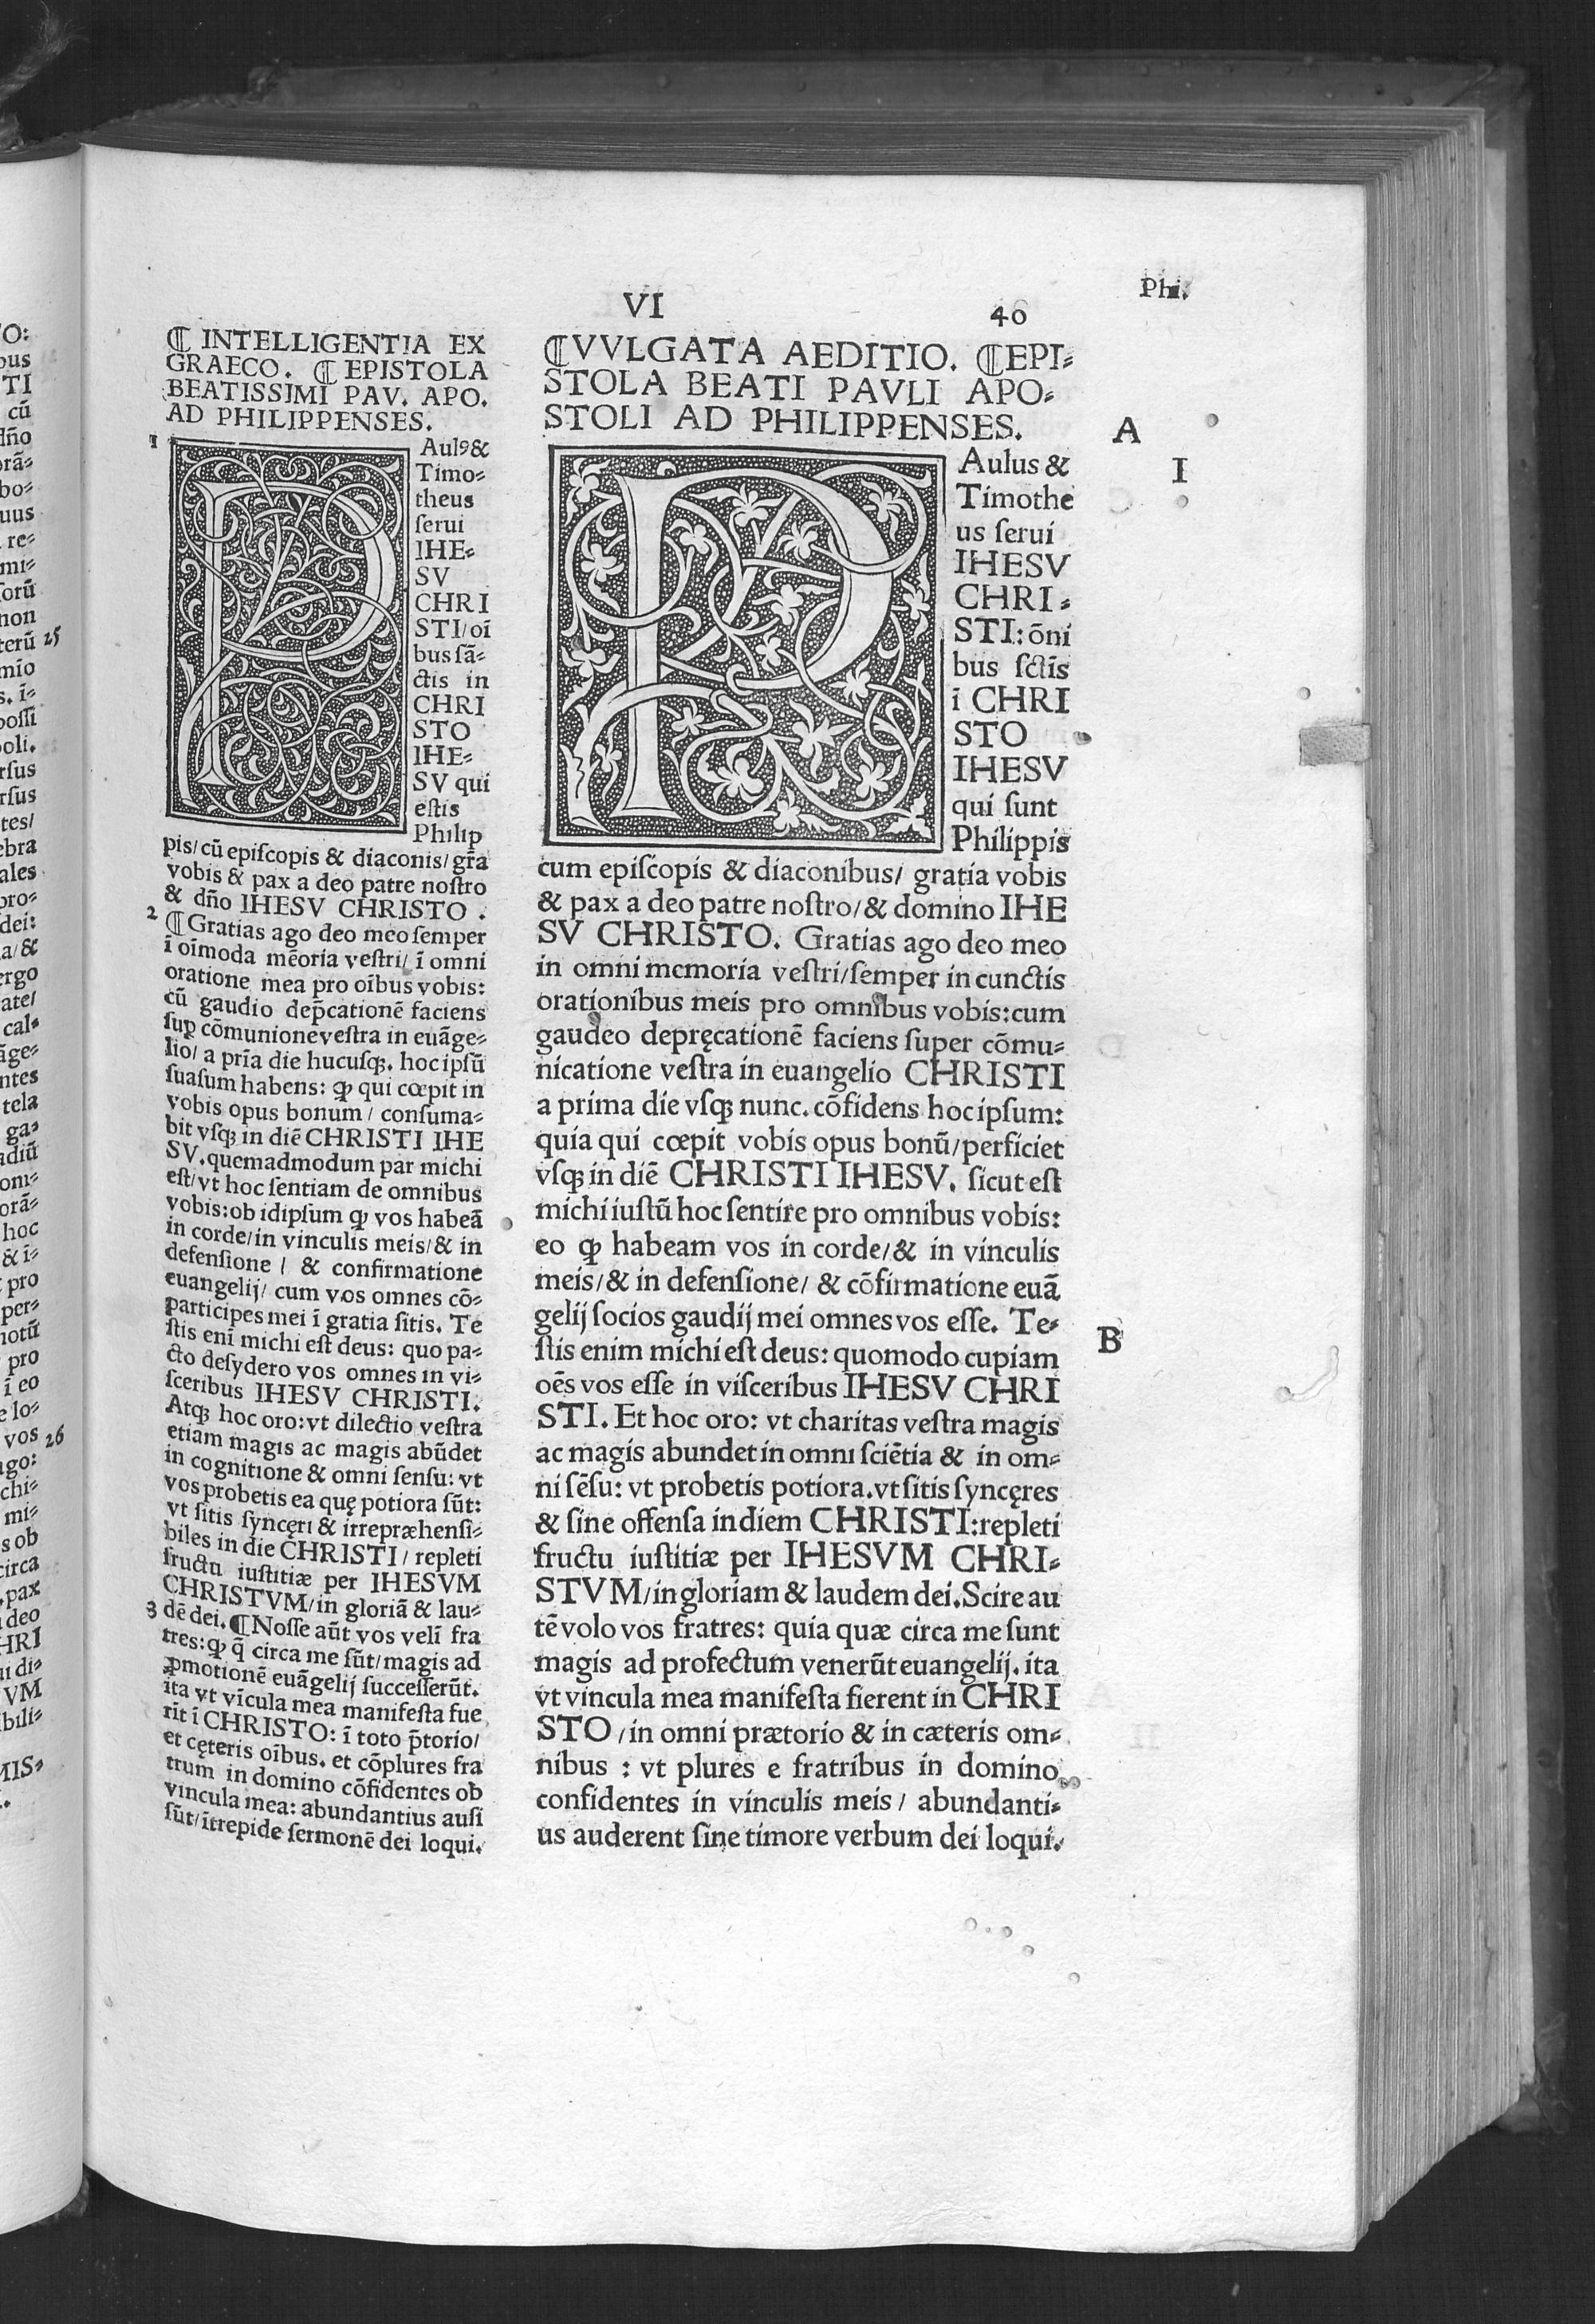 Phi.
VI
40
¶ INTELLIGENTIA EX
GRAECO. ¶ EPISTOLA
BEATISSIMI PAV. APO.
AD PHILIPPENSES.
1
PAulꝰ &
Timo⸗
theus
ſerui
IHE⸗
SV
CHRI
STI/oı̄
bus ſā⸗
ctis in
CHRI
STO
IHE⸗
SV qui
eſtis
Philip
pis/cū epiſcopis & diaconis/gr̄a
vobis & pax a deo patre noſtro
& dn̄o IHESV CHRISTO .
2
¶Gratias ago deo meo ſemper
ı̄ oı̄moda mēoria veſtri/ ı̄ omni
oratione mea pro oı̄bus vobis:
cū gaudio dep̄cationē faciens
ſuꝑ cōmunione veſtra in euāge⸗
lio/ a prı̄a die hucuſꝗ. hoc ipſū
ſuaſum habens: ꝙ qui cœpit in
vobis opus bonum/ conſuma⸗
bit vſꝗ in diē CHRISTI IHE
SV.quemadmodum par michi
eſt/vt hoc ſentiam de omnibus
vobis:ob idipſum ꝙ vos habeā
in corde/in vinculis meis/& in
defenſione / & confirmatione
euangelij/ cum vos omnes cō⸗
participes mei ı̄ gratia ſitis. Te
ſtis enı̄ michi eſt deus: quo pa⸗
cto deſydero vos omnes in vi⸗
ſceribus IHESV CHRISTI.
Atꝗ hoc oro:vt dilectio veſtra
etiam magis ac magis abūdet
in cognitione & omni ſenſu: vt
vos probetis ea quę potiora ſūt:
vt ſitis ſyncęri & irrepræhenſi⸗
biles in die CHRISTI/ repleti
fructu iuſtitiæ per IHESVM
CHRISTVM/in gloriā & lau⸗
3
dē dei.¶Noſſe aūt vos velı̄ fra
tres:ꝙ q̄ circa me ſūt/magis ad
ꝓmotionē euāgelij ſucceſſerūt.
ita vt vı̄cula mea manifeſta fue
rı̄t ı̄ CHRISTO: ı̄ toto p̄torio/
et cęteris oı̄bus. et cōplures fra
trum in domino cōfidentes ob
vincula mea: abundantius auſi
ſūt/ı̄trepide ſermonē dei loqui.
¶VVLGATA AEDITIO. ¶EPI⸗
STOLA BEATI PAVLI APO⸗
STOLI AD PHILIPPENSES.
A
I
PAulus &
Timothe
us ſerui
IHESV
CHRI⸗
STI:ōni
bus ſctı̄s
ı̄ CHRI
STO
IHESV
qui ſunt
Philippis
cum epiſcopis & diaconibus/ gratia vobis
& pax a deo patre noſtro/& domino IHE
SV CHRISTO. Gratias ago deo meo
in omni memoria veſtri/ſemper in cunctis
orationibus meis pro omnibus vobis:cum
gaudeo depręcationē faciens ſuper cōmu⸗
nicatione veſtra in euangelio CHRISTI
a prima die vſꝗ nunc. cōfidens hoc ipſum:
quia qui cœpit vobis opus bonū/perficiet
vſꝗ in diē CHRISTI IHESV. ſicut eſt
michi iuſtū hoc ſentire pro omnibus vobis:
eo ꝙ habeam vos in corde/& in vinculis
meis/& in defenſione/ & cōfirmatione euā
gelij ſocios gaudij mei omnes vos eſſe. Te⸗
B
ſtis enim michi eſt deus: quomodo cupiam
oēs vos eſſe in viſceribus IHESV CHRI
STI. Et hoc oro: vt charitas veſtra magis
ac magis abundet in omni ſciētia & in om⸗
ni ſēſu: vt probetis potiora.vt ſitis ſyncęres
& ſine offenſa in diem CHRISTI:repleti
fructu iuſtitiæ per IHESVM CHRI⸗
STVM/in gloriam & laudem dei.Scire au
tē volo vos fratres: quia quæ circa me ſunt
magis ad profectum venerūt euangelij. ita
vt vincula mea manifeſta fierent in CHRI
STO /in omni prætorio & in cæteris om⸗
nibus : vt plures e fratribus in domino
confidentes in vinculis meis / abundanti⸗
us auderent ſine timore verbum dei loqui.